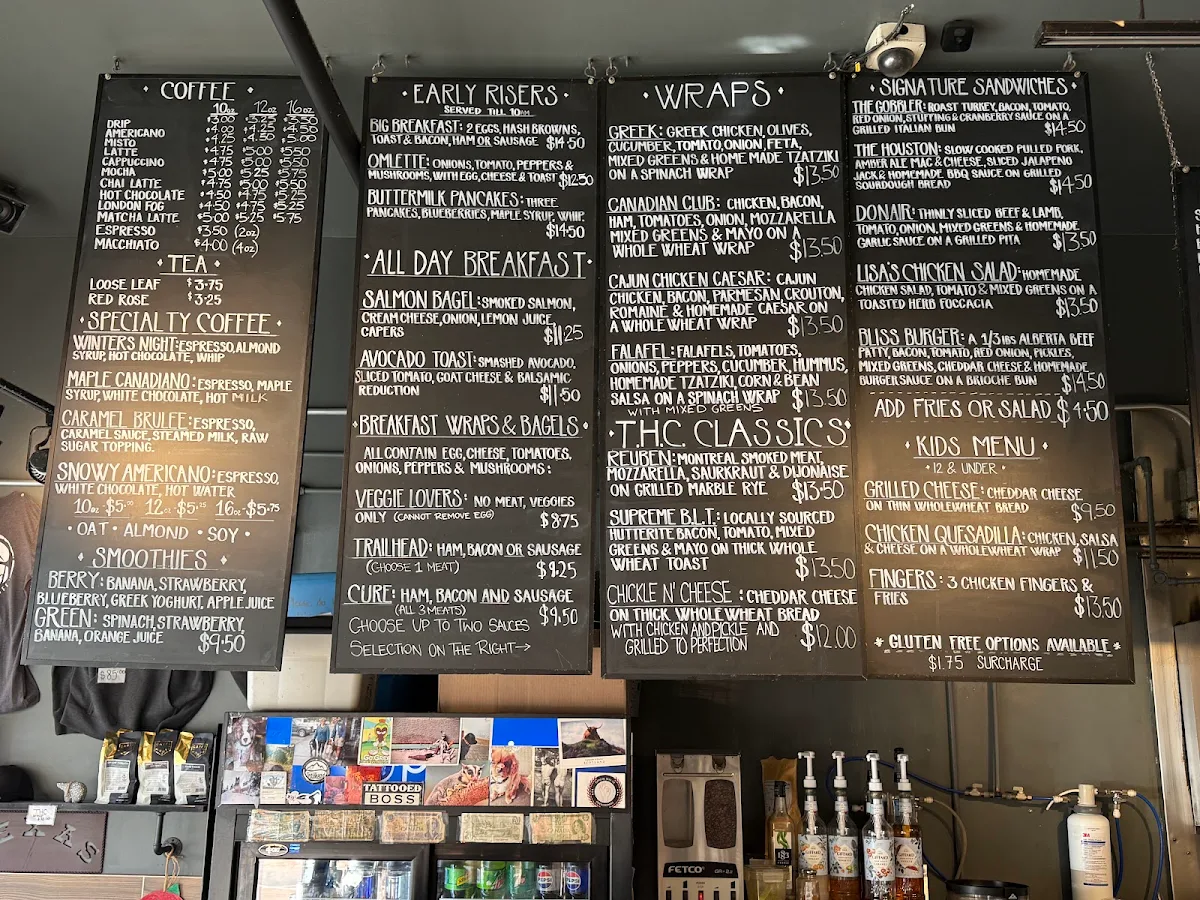 COFFEE
10oz 12oz 16oz
DRIP $3.00 $3.25 $3.50
AMERICANO $4.00 $4.25 $4.50
MISTO $4.25 $4.50 $5.00
LATTE $4.75 $5.00 $5.50
CAPPUCCINO $4.75 $5.00 $5.50
MOCHA $5.00 $5.25 $5.75
CHAI LATTE $4.75 $5.00 $5.50
HOT CHOCOLATE $4.50 $4.75 $5.25
LONDON FOG $4.50 $4.75 $5.25
MATCHA LATTE $5.00 $5.25 $5.75
ESPRESSO $3.50 (2oz)
MACCHIATO $4.00 (4oz)
TEA
LOOSE LEAF $3.75
RED ROSE $3.25
SPECIALTY COFFEE
WINTERS NIGHT: ESPRESSO, ALMOND
SYRUP, HOT CHOCOLATE, WHIP
MAPLE CANADIANO: ESPRESSO, MAPLE
SYRUP, WHITE CHOCOLATE, HOT MILK
CARAMEL BRULEE: ESPRESSO,
CARAMEL SAUCE, STEAMED MILK, RAW
SUGAR TOPPING.
SNOWY AMERICANO: ESPRESSO,
WHITE CHOCOLATE, HOT WATER
10oz $5.00 12oz $5.25 16oz $5.75
• OAT • ALMOND • SOY •
SMOOTHIES
BERRY: BANANA, STRAWBERRY,
BLUEBERRY, GREEK YOGHURT, APPLE JUICE
GREEN: SPINACH, STRAWBERRY,
BANANA, ORANGE JUICE $9.50
EARLY RISERS
SERVED TILL 10AM
BIG BREAKFAST: 2 EGGS, HASH BROWNS,
TOAST & BACON, HAM OR SAUSAGE $14.50
OMLETTE: ONIONS, TOMATO, PEPPERS &
MUSHROOMS, WITH EGG, CHEESE & TOAST $12.50
BUTTERMILK PANCAKES: THREE
PANCAKES, BLUEBERRIES, MAPLE SYRUP, WHIP
$14.50
ALL DAY BREAKFAST
SALMON BAGEL: SMOKED SALMON,
CREAM CHEESE, ONION, LEMON JUICE,
CAPERS $11.25
AVOCADO TOAST: SMASHED AVOCADO,
SLICED TOMATO, GOAT CHEESE & BALSAMIC
REDUCTION $11.50
BREAKFAST WRAPS & BAGELS
ALL CONTAIN EGG, CHEESE, TOMATOES,
ONIONS, PEPPERS & MUSHROOMS:
VEGGIE LOVERS: NO MEAT, VEGGIES
ONLY (CANNOT REMOVE EGG) $8.75
TRAILHEAD: HAM, BACON OR SAUSAGE
(CHOOSE 1 MEAT) $9.25
CURE: HAM, BACON AND SAUSAGE
(ALL 3 MEATS) $9.50
CHOOSE UP TO TWO SAUCES
SELECTION ON THE RIGHT→
WRAPS
GREEK: GREEK CHICKEN, OLIVES,
CUCUMBER, TOMATO, ONION, FETA,
MIXED GREENS & HOME MADE TZATZIKI
ON A SPINACH WRAP $13.50
CANADIAN CLUB: CHICKEN, BACON,
HAM, TOMATOES, ONION, MOZZARELLA
MIXED GREENS & MAYO ON A
WHOLE WHEAT WRAP $13.50
CAJUN CHICKEN CAESAR: CAJUN
CHICKEN, BACON, PARMESAN, CROUTON,
ROMAINE & HOMEMADE CAESAR ON
A WHOLE WHEAT WRAP $13.50
FALAFEL: FALAFELS, TOMATOES,
ONIONS, PEPPERS, CUCUMBER, HUMMUS,
HOMEMADE TZATZIKI, CORN & BEAN
SALSA ON A SPINACH WRAP $13.50
WITH MIXED GREENS
T.H.C. CLASSICS
REUBEN: MONTREAL SMOKED MEAT,
MOZZARELLA, SAURKRAUT & DIJONAISE
ON GRILLED MARBLE RYE $13.50
SUPREME B.L.T.: LOCALLY SOURCED
HUTTERITE BACON, TOMATO, MIXED
GREENS & MAYO ON THICK WHOLE
WHEAT TOAST $13.50
CHICKLE N' CHEESE: CHEDDAR CHEESE
ON THICK WHOLE WHEAT BREAD
WITH CHICKEN AND PICKLE AND
GRILLED TO PERFECTION $12.00
SIGNATURE SANDWICHES
THE GOBBLER: ROAST TURKEY, BACON, TOMATO,
RED ONION, STUFFING & CRANBERRY SAUCE ON A
GRILLED ITALIAN BUN $14.50
THE HOUSTON: SLOW COOKED PULLED PORK,
AMBER ALE MAC & CHEESE, SLICED JALAPENO
JACK & HOMEMADE BBQ SAUCE ON GRILLED
SOURDOUGH BREAD $14.50
DONAIR: THINLY SLICED BEEF & LAMB,
TOMATO, ONION, MIXED GREENS & HOMEMADE
GARLIC SAUCE ON A GRILLED PITA $13.50
LISA'S CHICKEN SALAD: HOMEMADE
CHICKEN SALAD, TOMATO & MIXED GREENS ON A
TOASTED HERB FOCCACIA $13.50
BLISS BURGER: A 1/3 lbs ALBERTA BEEF
PATTY, BACON, TOMATO, RED ONION, PICKLES,
MIXED GREENS, CHEDDAR CHEESE & HOMEMADE
BURGER SAUCE ON A BRIOCHE BUN $14.50
ADD FRIES OR SALAD $4.50
KIDS MENU
• 12 & UNDER •
GRILLED CHEESE: CHEDDAR CHEESE
ON THIN WHOLEWHEAT BREAD $9.50
CHICKEN QUESADILLA: CHICKEN, SALSA
& CHEESE ON A WHOLEWHEAT WRAP $11.50
FINGERS: 3 CHICKEN FINGERS &
FRIES $13.50
* GLUTEN FREE OPTIONS AVAILABLE *
$1.75 SURCHARGE
TATTOOED
BOSS
FETCO
PEPSI
3M